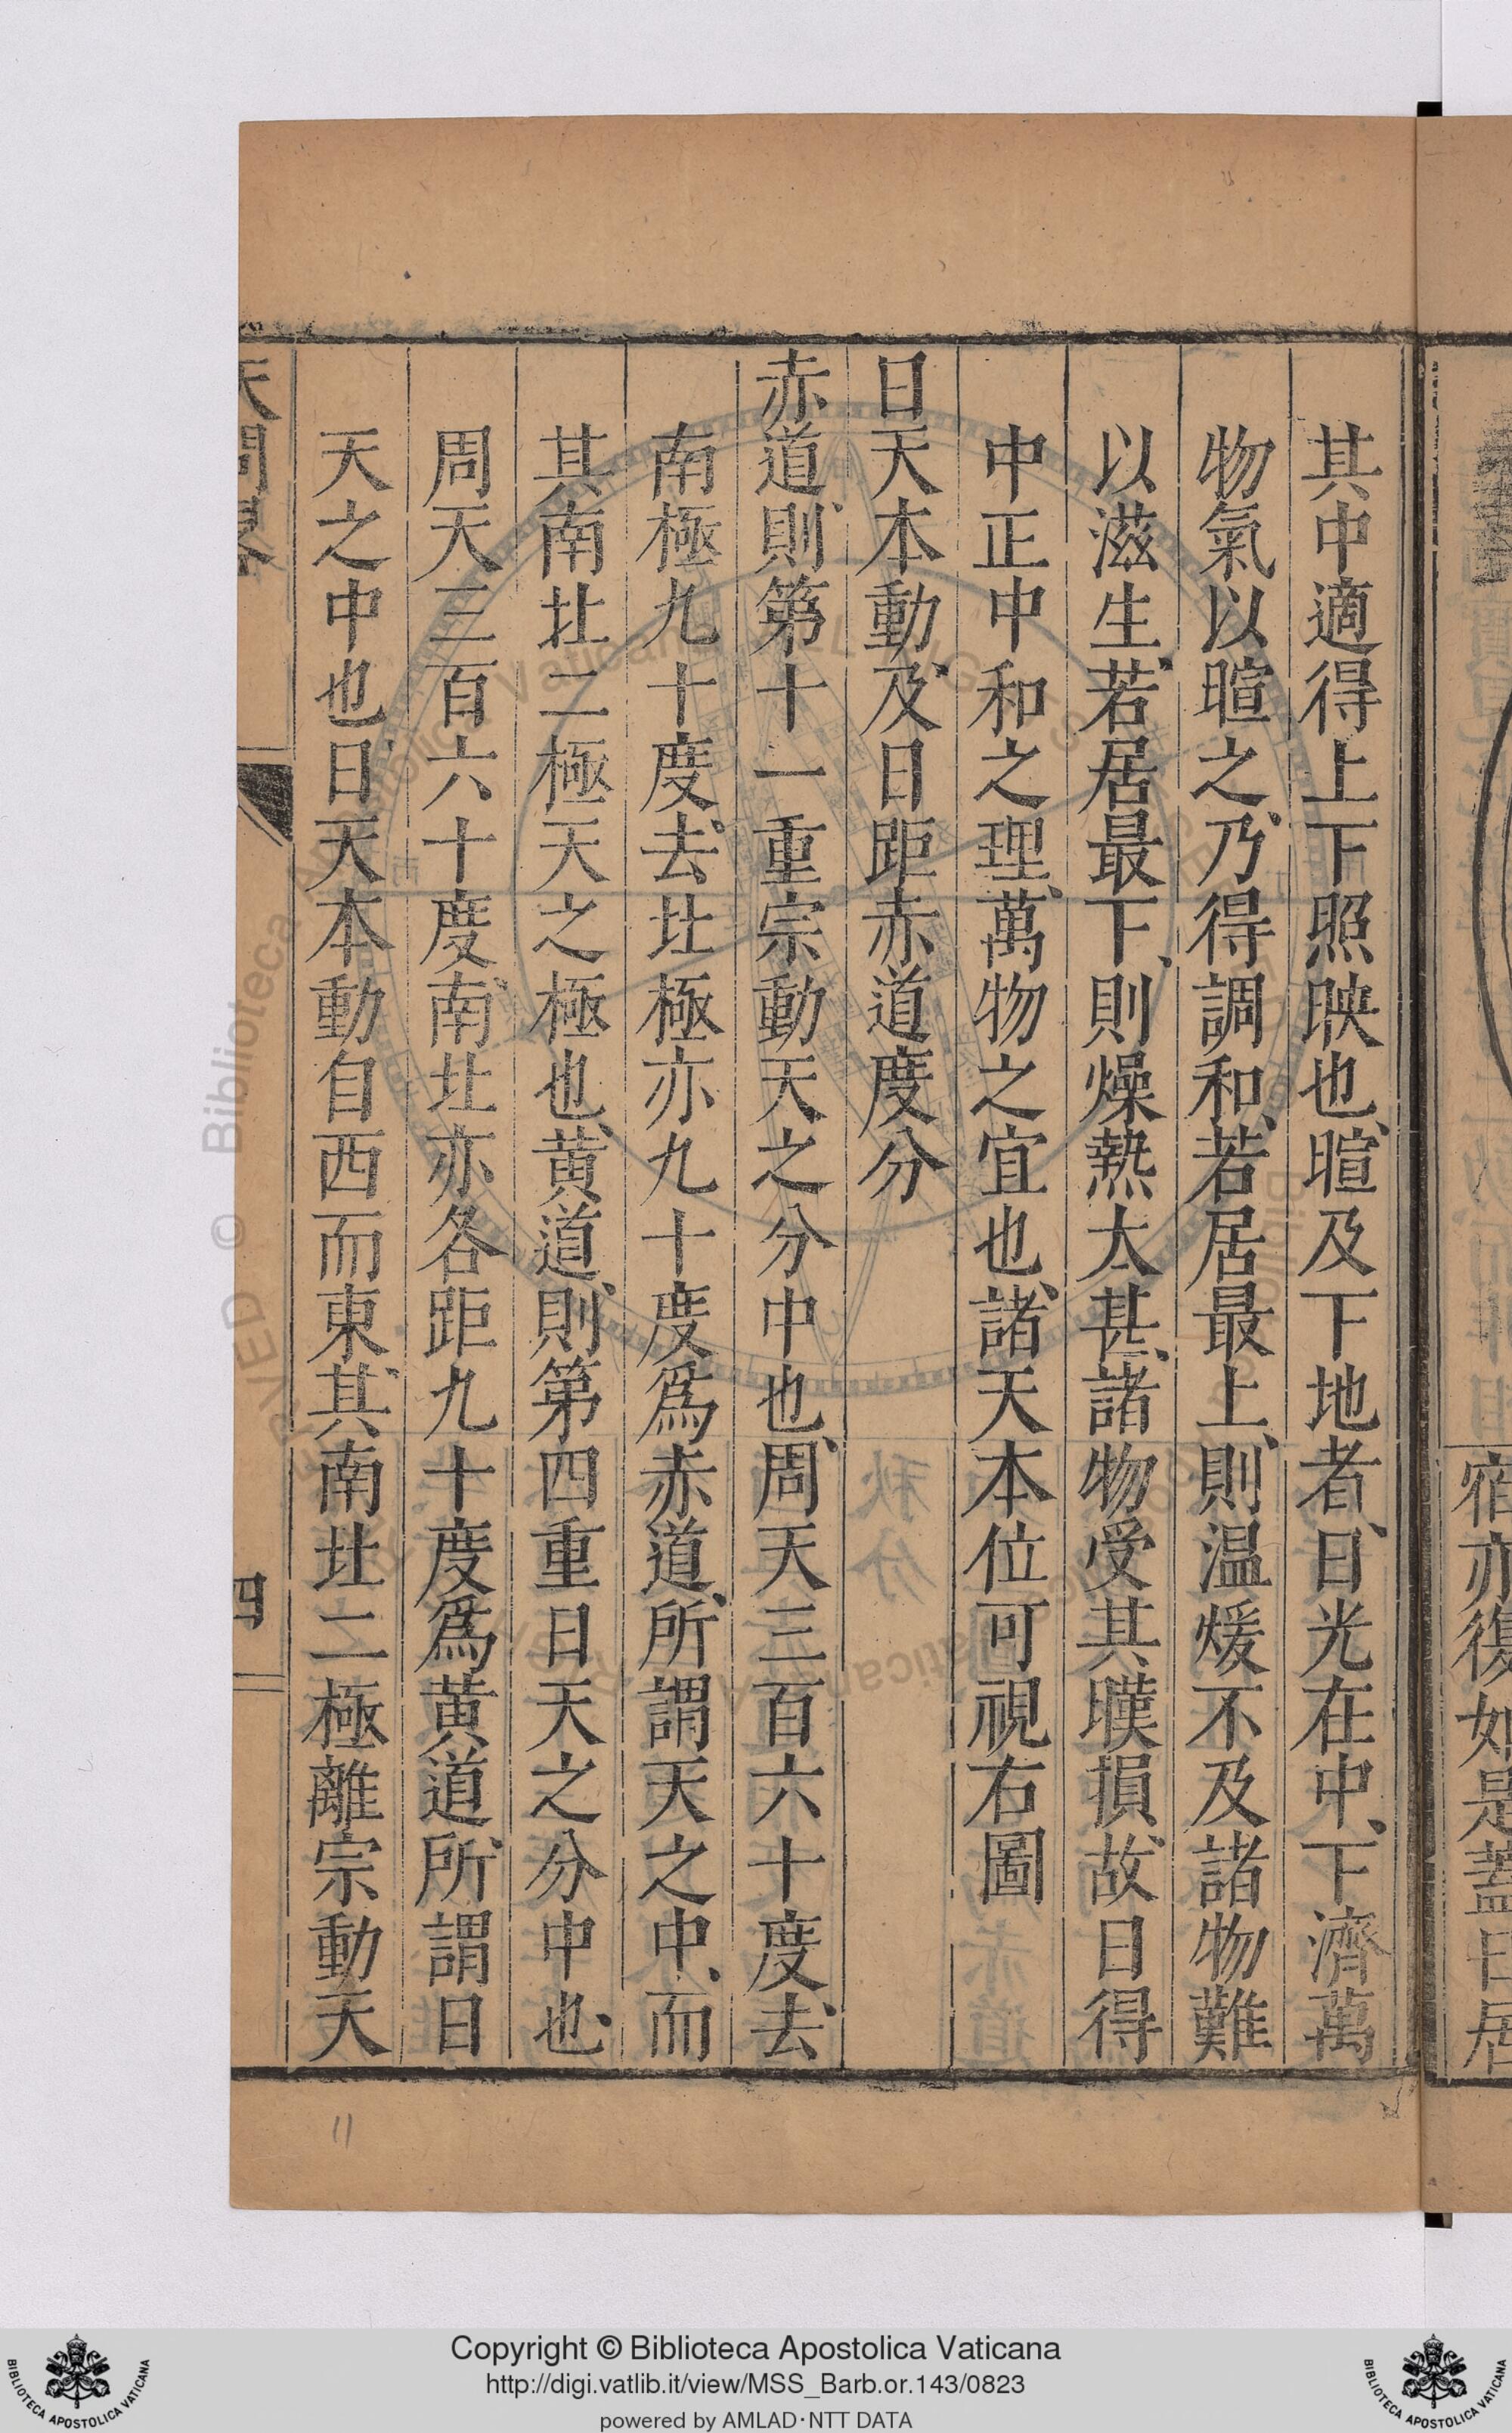 宿亦復如是蓋日居
其中適得上下照映也、暄及下地者、日光在中、下濟萬
物氣以暄之、乃得調和、若居最上、則温煖不及諸物難
以滋生、若居最下、則燥熱太甚、諸物受其暵損、故日得
中正中和之理、萬物之宜也、諸天本位可視右圖
日天本動、及日距赤道度分
赤道、則第十一重宗動天之分中也、周天三百六十度、去
南極九十度、去北極亦九十度爲赤道、所謂天之中、而
其南北二極天之極也、黄道、則第四重日天之分中也、
周天三百六十度、南北亦各距九十度爲黄道、所謂日
天之中也、日天本動自西而東、其南北二極離宗動天
天問畧
四
11
Copyright © Biblioteca Apostolica Vaticana
http://digi.vatlib.it/view/MSS_Barb.or.143/0823
powered by AMLAD·NTT DATA
BIBLIOTECA APOSTOLICA VATICANA
BIBLIOTECA APOSTOLICA VATICANA